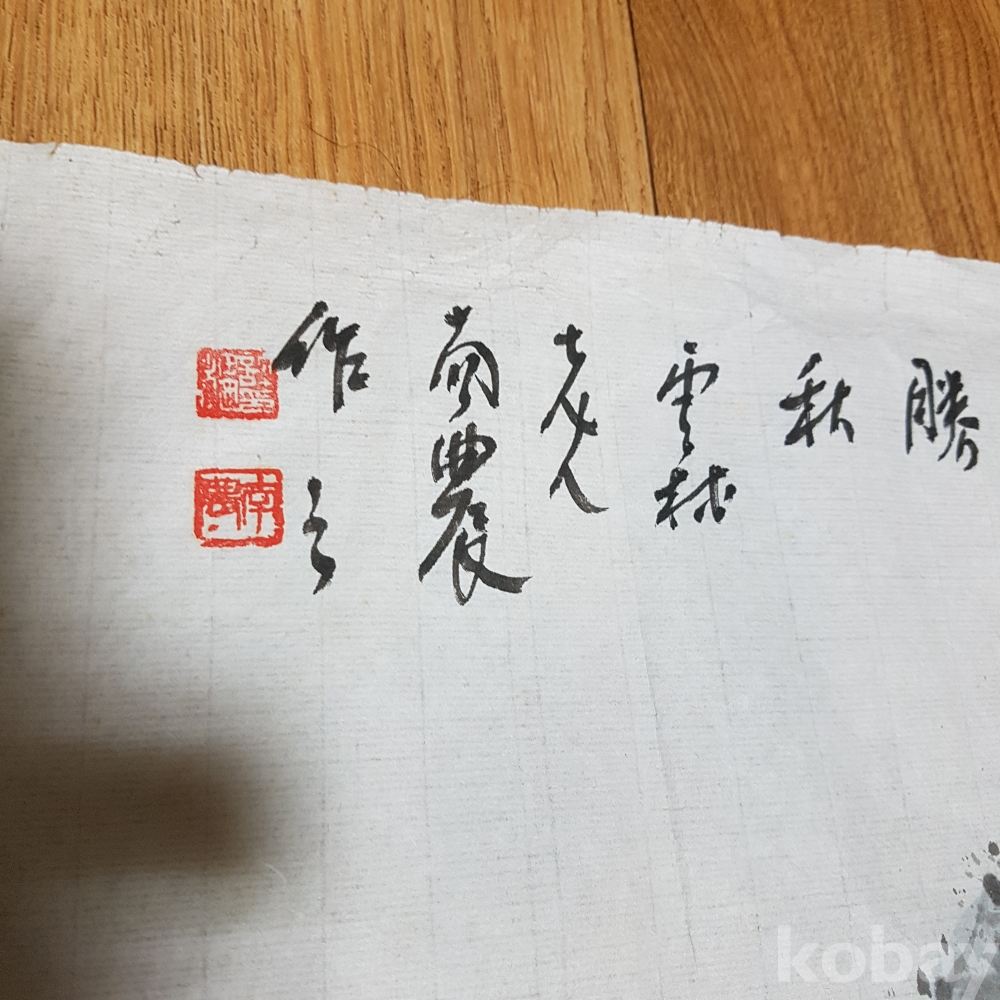 勝
秋
雲林
老人
南農
作之
南農
kobay